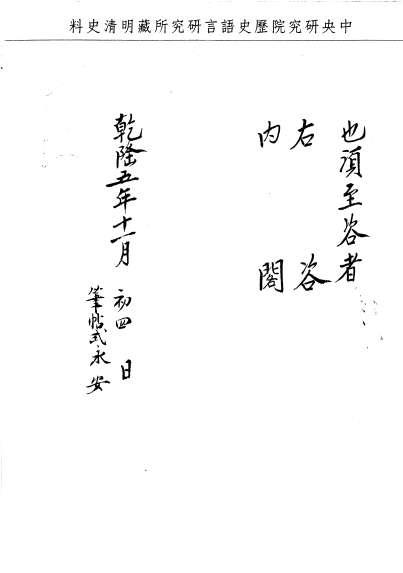 中央研究院歷史語言研究所藏明清史料
也須至咨者
右咨
內閣
乾隆五年十一月初四日
筆帖式永安